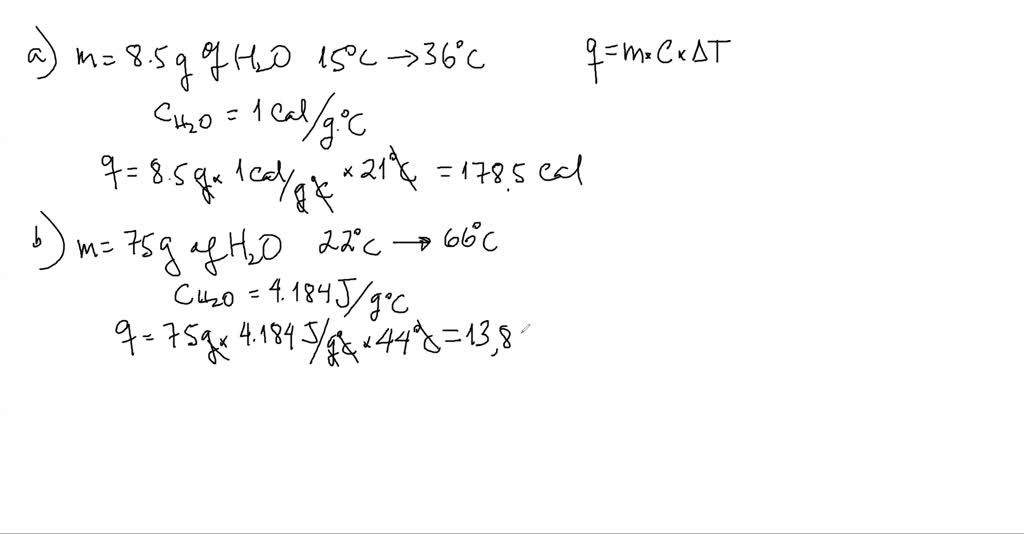 a) m = 8.5 g of H₂O 15°C → 36°C q = m × C × ΔT
C H₂O = 1 Cal/g.°C
q = 8.5 g × 1 Cal/g°C × 21°C = 178.5 Cal
b) m = 75 g of H₂O 22°C → 66°C
C H₂O = 4.184 J/g°C
q = 75 g × 4.184 J/g°C × 44°C = 13,8